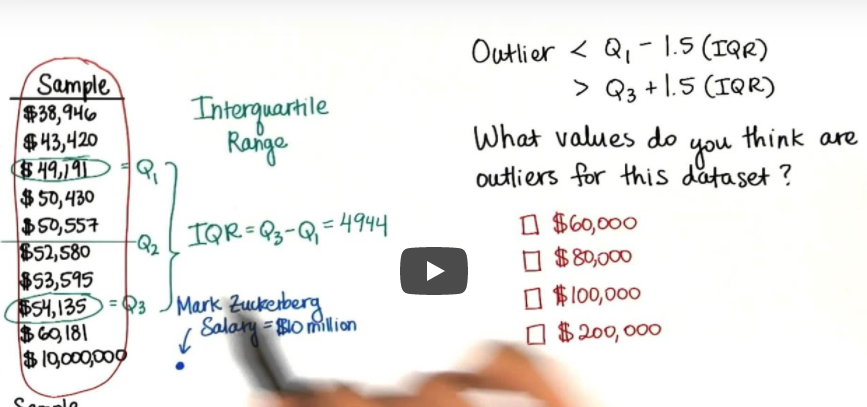 Sample
$38,946
$43,420
$49,191 = Q1
$50,430
$50,557
Q2
$52,580
$53,595
$54,135 = Q3
$60,181
$10,000,000
Sample
Interquartile
Range
IQR = Q3 - Q1 = 4944
Mark Zuckerberg
Salary = $10 million
Outlier < Q1 - 1.5 (IQR)
> Q3 + 1.5 (IQR)
What values do you think are
outliers for this dataset?
$60,000
$80,000
$100,000
$200,000